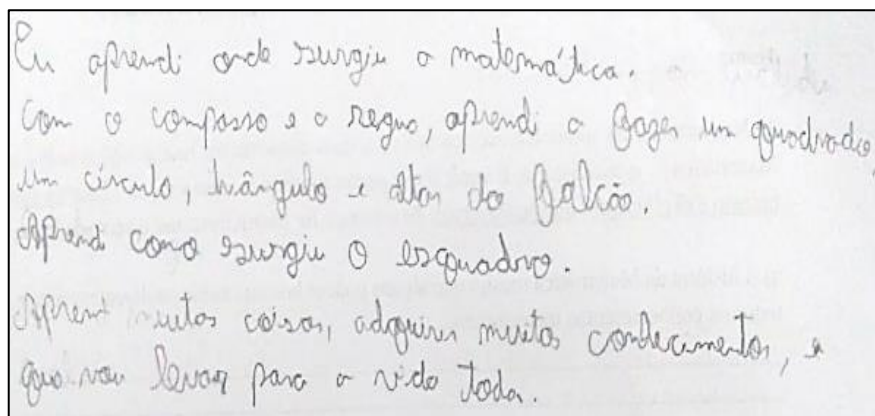 Eu aprendi onde surgiu a matemática.
Com o compasso e a regua, aprendi a fazer um quadrado
um círculo, triângulo e altar do falcão.
Aprendi como surgiu o esquadro.
Aprendi muitas coisas, adquirir muitos conhecimentos, e
que vou levar para a vida toda.